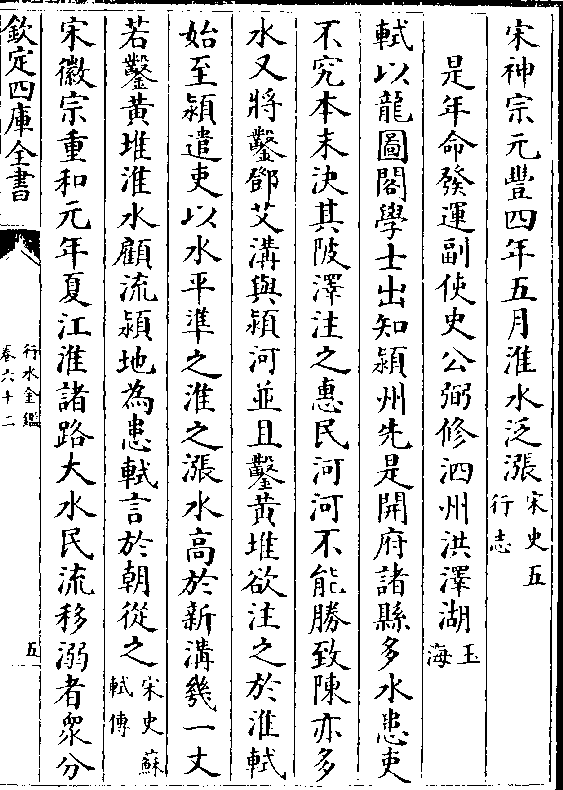 宋神宗元豐四年五月淮水泛漲宋史五行志
是年命發運副使史公弼修泗州洪澤湖玉海
軾以龍圖閣學士出知潁州先是開府諸縣多水患吏
不究本末決其陂澤注之惠民河河不能勝致陳亦多
水又將鑿鄧艾溝與潁河並且鑿黃堆欲注之於淮軾
始至潁遣吏以水平準之淮之漲水高於新溝幾一丈
若鑿黃堆淮水顧流潁地為患軾言於朝從之宋史蘇軾傳
宋徽宗重和元年夏江淮諸路大水民流移溺者眾分
欽定四庫全書
行水金鑑
卷六十二
五